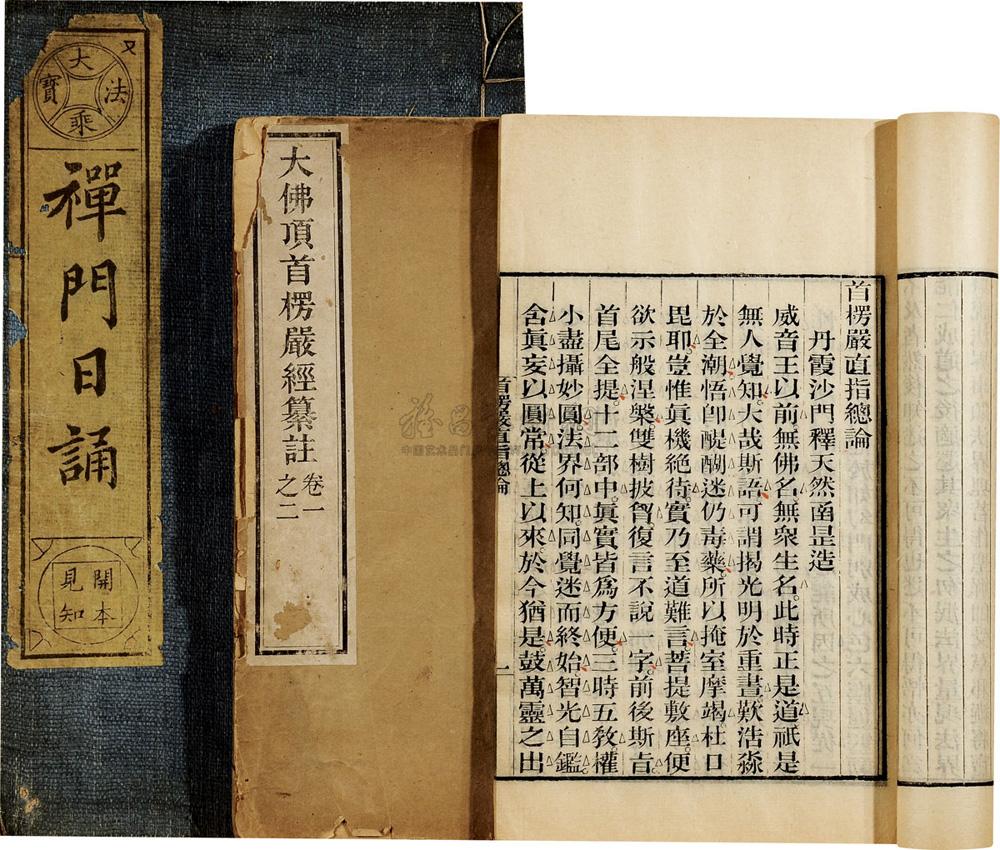 大乘法寶
禪門日誦
開本見知
大佛頂首楞嚴經纂註
卷一之二
首楞嚴直指總論
丹霞沙門釋天然函昰造
威音王以前無佛名無衆生名此時正是道祇是
無人覺知大哉斯語可謂揭光明於重晝歎浩淼
於全潮悟卽醍醐迷仍毒藥所以掩室摩竭杜口
毘耶豈惟眞機絶待實乃至道難言菩提敷座便
欲示般涅槃雙樹披胷復言不說一字前後斯旨
首尾全提十二部中眞實皆爲方便三時五教權
小盡攝妙圓法界何知同覺迷而終始智光自鑑
含眞妄以圓常從上以來於今猶是鼓萬靈之出
首楞嚴直指總論
一